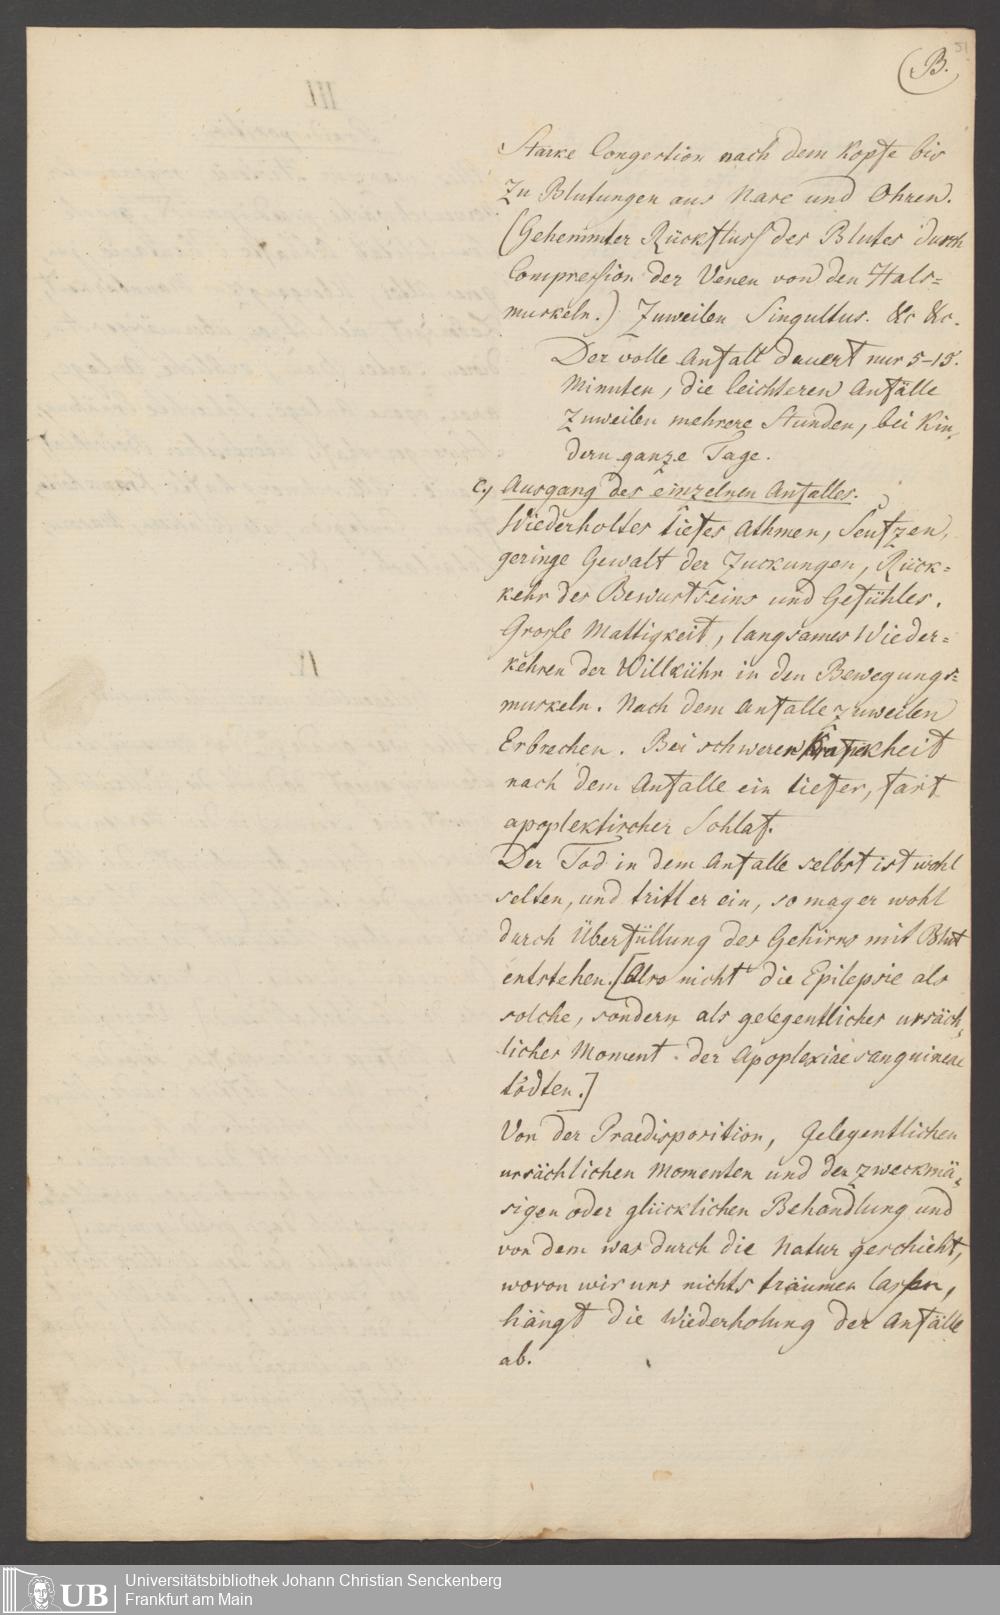 51
B.
Starke Congestion nach dem Kopfe bis
zu Blutungen aus Nase und Ohren.
(Gehemmter Rückfluss des Blutes durch
Compression der Venen von den Hals=
muskeln.) Zuweilen Singultus. &c &c.
Der volle Anfall dauert nur 5-15.
Minuten, die leichteren Anfälle
zuweilen mehrere Stunden, bei Kin,
dern ganze Tage.
c, Ausgang des einzelnen Anfalles.
Wiederholtes tiefes Athmen, Seufzen,
geringe Gewalt der Zuckungen, Rück=
kehr des Bewustseins und Gefühles.
Grosse Mattigkeit, langsames Wieder=
kehren der Willkühr in den Bewegungs=
muskeln. Nach dem Anfalle zuweilen
Erbrechen. Bei schweren Krankheit
nach dem Anfalle ein tiefer, fast
apoplektischer Schlaf.
Der Tod in dem Anfalle selbst ist wohl
selten, und tritt er ein, so mag er wohl
durch Überfüllung des Gehirns mit Blut
entstehen. [Also nicht die Epilepsie als
solche, sondern als gelegentliches ursäch,
liches Moment der Apoplexiae sanguineae
tödten.]
Von der Praedisposition, gelegentlichen
ursächlichen Momenten und der zweckmä,
sigen oder glücklichen Behandlung und
von dem was durch die Natur geschieht,
wovon wir uns nichts träumen lassen,
hängt die Wiederholung der Anfälle
ab.
UB
Universitätsbibliothek Johann Christian Senckenberg
Frankfurt am Main